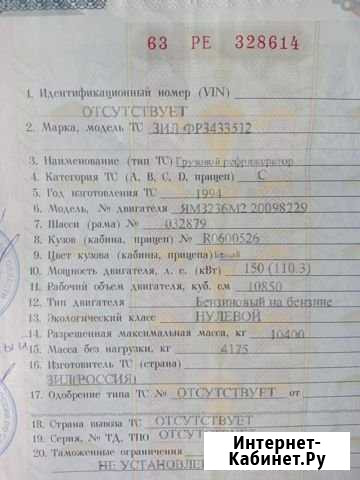 63 РЕ 328614
1. Идентификационный номер (VIN)
ОТСУТСТВУЕТ
2. Марка, модель ТС ЗИЛ ФР3433512
3. Наименование (тип ТС) Грузовой рефрижератор
4. Категория ТС (А, В, С, D, прицеп) С
5. Год изготовления ТС 1994
6. Модель, № двигателя ЯМЗ236М2 20098229
7. Шасси (рама) № 032879
8. Кузов (кабина, прицеп) № R0600526
9. Цвет кузова (кабины, прицепа) Белый
10. Мощность двигателя, л. с. (кВт) 150 (110.3)
11. Рабочий объем двигателя, куб. см 10850
12. Тип двигателя Бензиновый на бензине
13. Экологический класс НУЛЕВОЙ
14. Разрешенная максимальная масса, кг 10400
15. Масса без нагрузки, кг 4175
16. Изготовитель ТС (страна)
ЗИЛ(РОССИЯ)
17. Одобрение типа ТС № ОТСУТСТВУЕТ от
18. Страна вывоза ТС ОТСУТСТВУЕТ
19. Серия, № ТД, ТПО ОТСУТСТВУЕТ
20. Таможенные ограничения
НЕ УСТАНОВЛЕНЫ
Интернет-
Кабинет.Ру